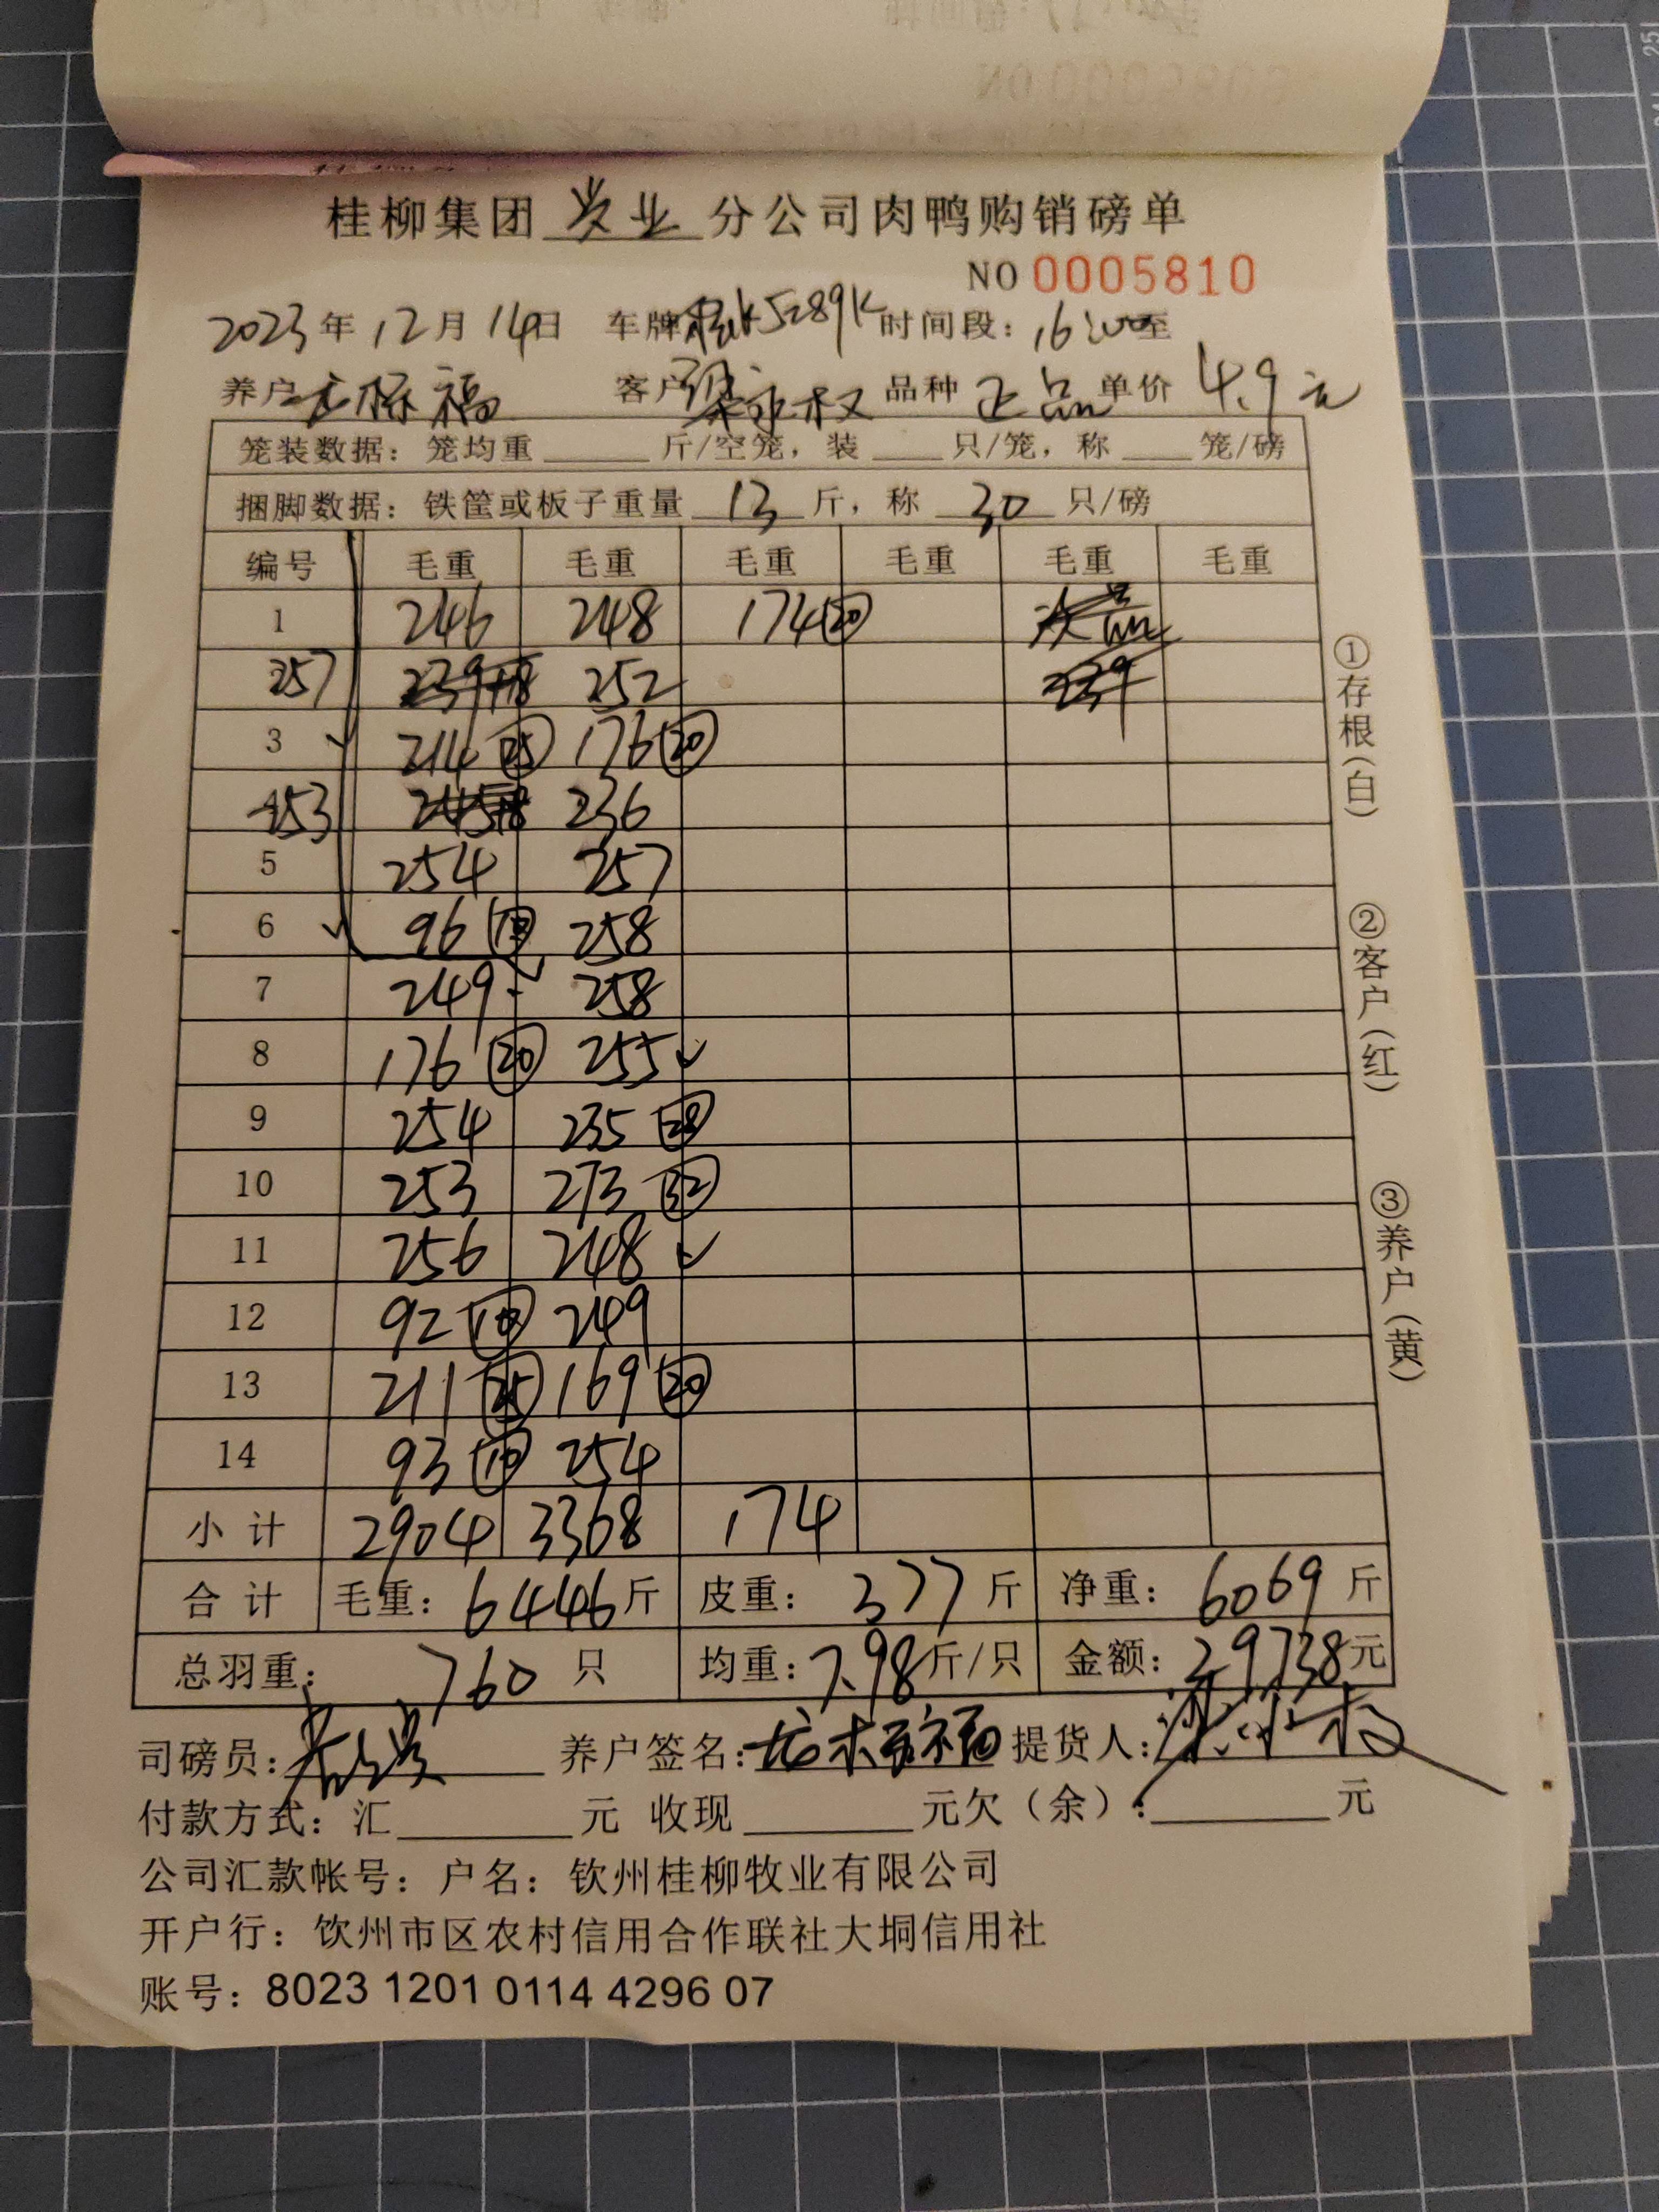 桂柳集团 兴业 分公司肉鸭购销磅单
NO 0005810
2023年 12月 14日 车牌 桂K5289K 时间段： 16:00至
养户 福 客户 梁永权 品种 正品 单价 4.9元
笼装数据：笼均重 斤/空笼，装 只/笼，称 笼/磅
捆脚数据：铁筐或板子重量 13 斤，称 30 只/磅
编号 毛重 毛重 毛重 毛重 毛重 毛重
1 246 248 174 20 次品
257 239+18 252 239
3 214 25 176 20
253 245+8 236
5 254 257
6 96 10 258
7 249 258
8 176 20 255
9 254 235 28
10 253 273 32
11 256 248
12 92 10 249
13 211 25 169 20
14 93 10 254
小计 2904 3368 174
合计 毛重：6446斤 皮重：377斤 净重：6069斤
总羽重：760只 均重：7.98斤/只 金额：29738元
司磅员： 养户签名： 福 提货人：梁永权
付款方式：汇 元 收现 元欠（余）： 元
公司汇款帐号：户名：钦州桂柳牧业有限公司
开户行：钦州市区农村信用合作联社大垌信用社
账号：8023 1201 0114 4296 07
①存根（白）
②客户（红）
③养户（黄）